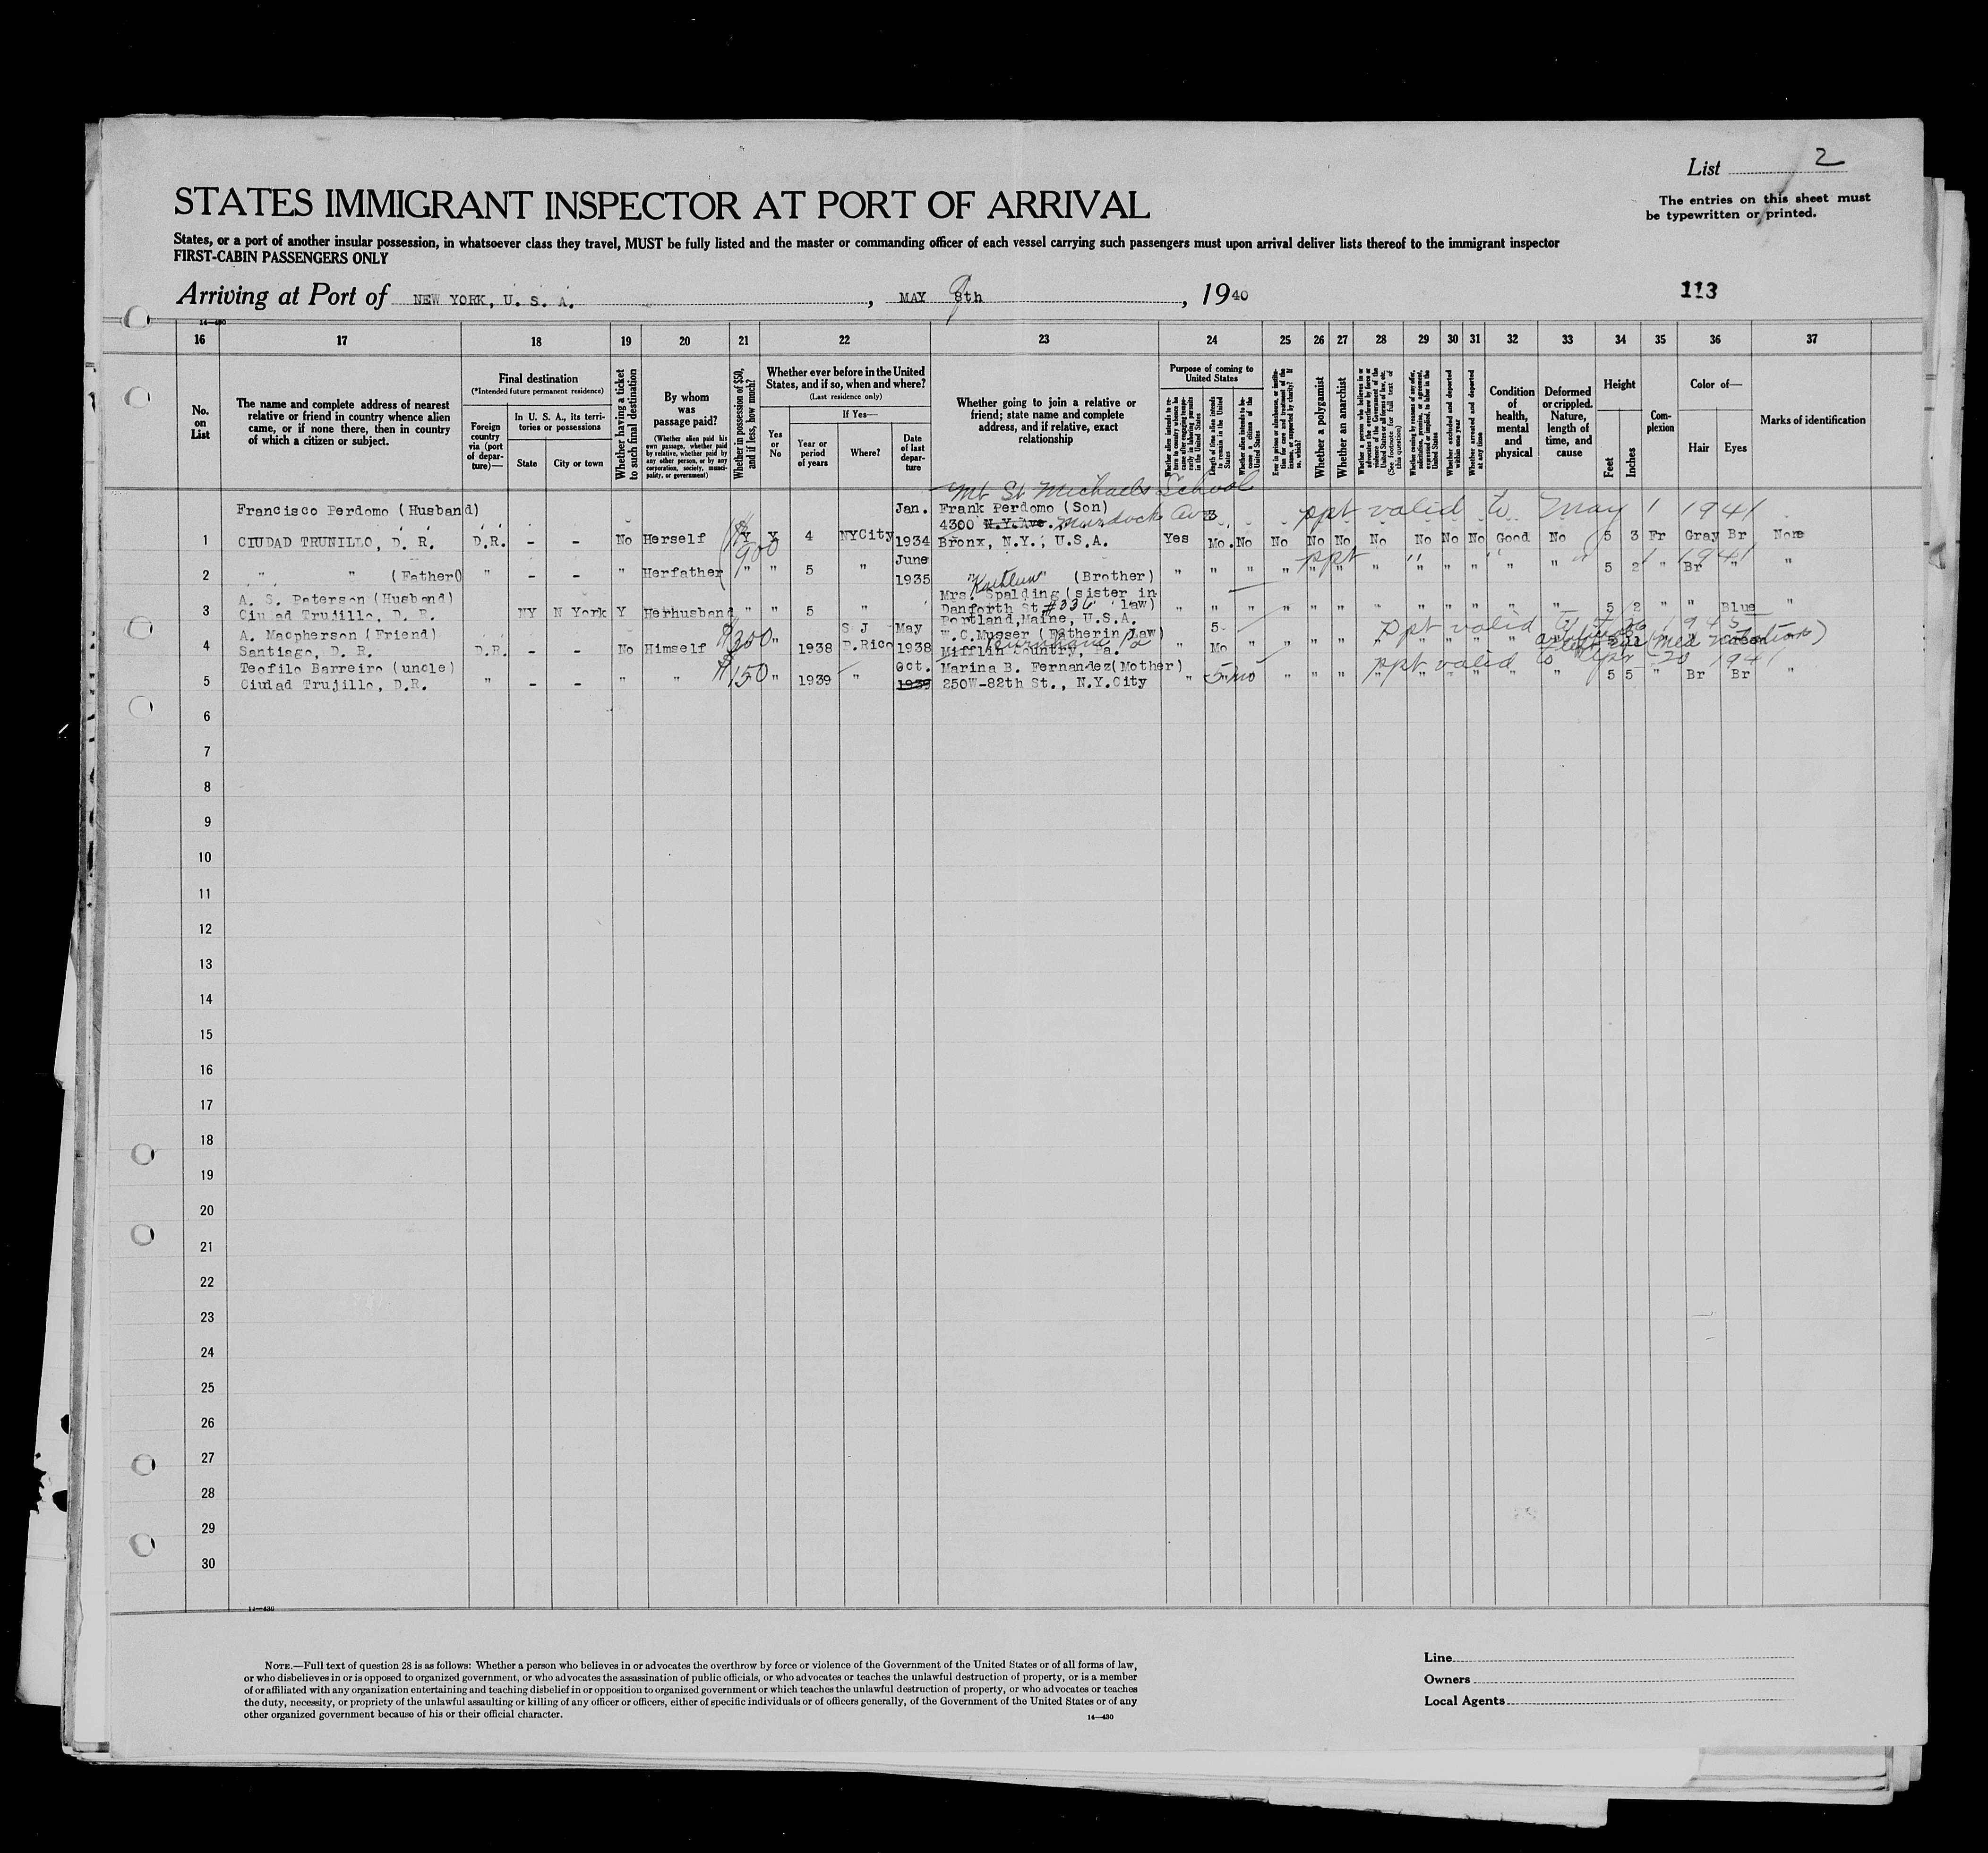 List 2
The entries on this sheet must
be typewritten or printed.
STATES IMMIGRANT INSPECTOR AT PORT OF ARRIVAL
States, or a port of another insular possession, in whatsoever class they travel, MUST be fully listed and the master or commanding officer of each vessel carrying such passengers must upon arrival deliver lists thereof to the immigrant inspector
FIRST-CABIN PASSENGERS ONLY
Arriving at Port of NEW YORK, U. S. A. , MAY 8th , 1940
113
14—430
16 17 18 19 20 21 22 23 24 25 26 27 28 29 30 31 32 33 34 35 36 37
No. on List
The name and complete address of nearest relative or friend in country whence alien came, or if none there, then in country of which a citizen or subject.
Final destination
(*Intended future permanent residence)
Foreign country via (port of departure)—
In U. S. A., its territories or possessions
State
City or town
Whether having a ticket to such final destination
By whom was passage paid?
(Whether alien paid his own passage, whether paid by relative, whether paid by any other person, or by any corporation, society, municipality, or government)
Whether in possession of $50, and if less, how much?
Whether ever before in the United States, and if so, when and where?
(Last residence only)
Yes or No
If Yes—
Year or period of years
Where?
Date of last departure
Whether going to join a relative or friend; state name and complete address, and if relative, exact relationship
Purpose of coming to United States
Length of time alien intends to remain in the United States
Whether alien intends to become a citizen of the United States
Whether a polygamist
Whether an anarchist
Whether excluded and deported within one year
Whether arrested and deported at any time
Condition of health, mental and physical
Deformed or crippled. Nature, length of time, and cause
Height
Feet
Inches
Complexion
Color of—
Hair
Eyes
Marks of identification
Mt St Michaels School
Francisco Perdomo (Husband) Jan. Frank Perdomo (Son) ppt valid to May 1 1941
4300 N.Y.Ave. Murdock Ave 3
1 CIUDAD TRUNILLO, D. R. D.R. - - No Herself Y Y 4 NYCity 1934 Bronx, N.Y., U.S.A. Yes Mo. No No No No No No No No Good No 5 3 Fr Gray Br None
900
June ppt " " " 1 1941
2 " " (Father) " - - " Herfather " " 5 " 1935 " (Brother) " " " " " " " " " " " " 5 2 " Br " "
A. S. Paterson (Husband) Mrs. Spalding (sister in
3 Ciudad Trujillo, D. R. NY N York Y Herhusband " " 5 " Danforth St #336 law) " " " " " " " " " " " " 5 2 " " Blue "
Portland, Maine, U.S.A.
A. Macpherson (Friend) S J May W.C.Musser (Fatherin Law) 5 ppt valid to 1945
4 Santiago, D. R. D.R. - - No Himself $300 " 1938 P.Rico 1938 Mifflin Country, Pa. " Mo " "
Teofilo Barreiro (uncle) Oct. Marina B. Fernandez(Mother) ppt valid to Apr 20 1941
5 Ciudad Trujillo, D.R. " - - " " $150 " 1939 " 1939 250W-82th St., N.Y.City " 5 mo " " " " " " " " " " 5 5 " Br Br "
6
7
8
9
10
11
12
13
14
15
16
17
18
19
20
21
22
23
24
25
26
27
28
29
30
14—430
NOTE.—Full text of question 28 is as follows: Whether a person who believes in or advocates the overthrow by force or violence of the Government of the United States or of all forms of law,
or who disbelieves in or is opposed to organized government, or who advocates the assassination of public officials, or who advocates or teaches the unlawful destruction of property, or is a member
of or affiliated with any organization entertaining and teaching disbelief in or opposition to organized government or which teaches the unlawful destruction of property, or who advocates or teaches
the duty, necessity, or propriety of the unlawful assaulting or killing of any officer or officers, either of specific individuals or of officers generally, of the Government of the United States or of any
other organized government because of his or their official character.
14—430
Line
Owners
Local Agents